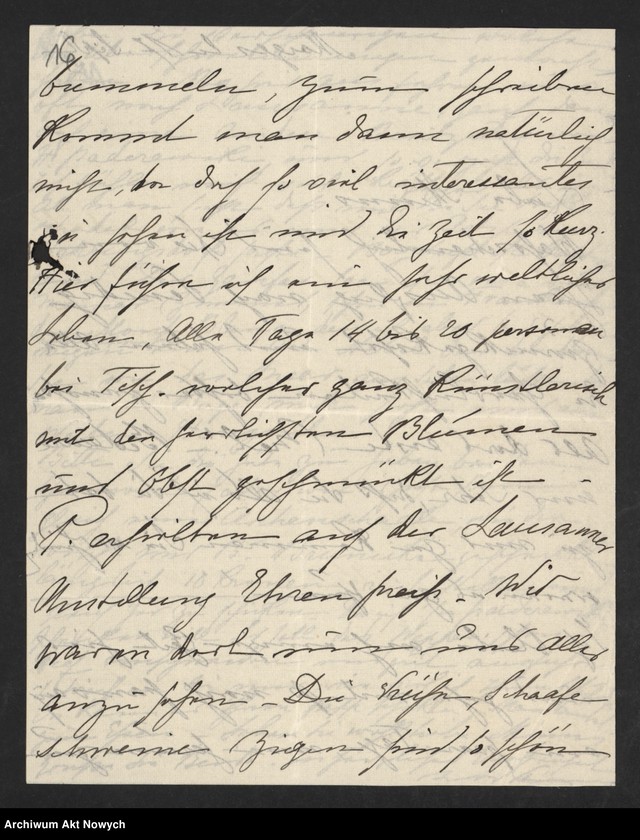 16
bummeln, zum schreiben
kommt man dann natürlich
nicht, da dort so viel interessantes
zu sehen ist und die Zeit so kurz.
Hier führen ich ein sehr weltliches
Leben, Alle Tage 14 bis 20 personen
bei Tisch. welcher ganz Künstlerisch
mit den herrlichsten Blumen
und Obst geschmückt ist -
P. erhielten auf der Lausanner
Ausstellung Ehren preiß - Wir
waren dort um uns alles
anzu sehen - Die Kühe, Schaafe
schweine Zigen sind so schön
Archiwum Akt Nowych